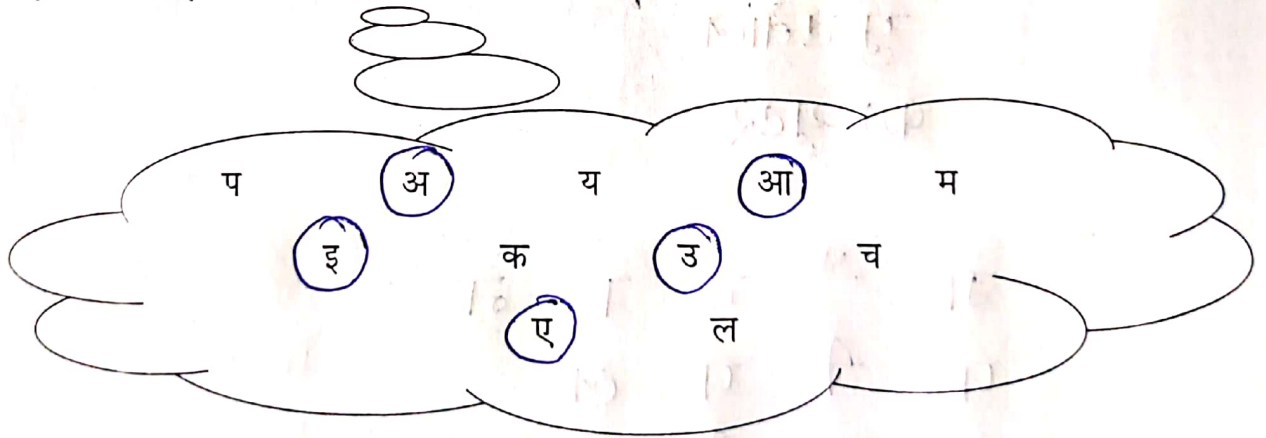 प अ य आ म
इ क उ च
ए ल